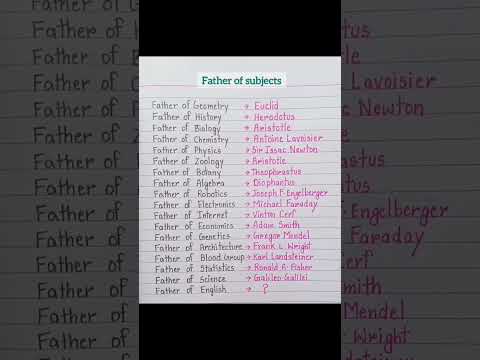 Father of subjects
Father of Geometry → Euclid
Father of History → Herodotus
Father of Biology → Aristotle
Father of Chemistry → Antoine Lavoisier
Father of Physics → Sir Isaac Newton
Father of Zoology → Aristotle
Father of Botany → Theophrastus
Father of Algebra → Diophantus
Father of Robotics → Joseph F. Engelberger
Father of Electronics → Michael Faraday
Father of Internet → Vinton Cerf
Father of Economics → Adam Smith
Father of Genetics → Gregor Mendel
Father of Architecture → Frank L. Wright
Father of Blood Group → Karl Landsteiner
Father of Statistics → Ronald A. Fisher
Father of Science → Galileo Galilei
Father of English → ?